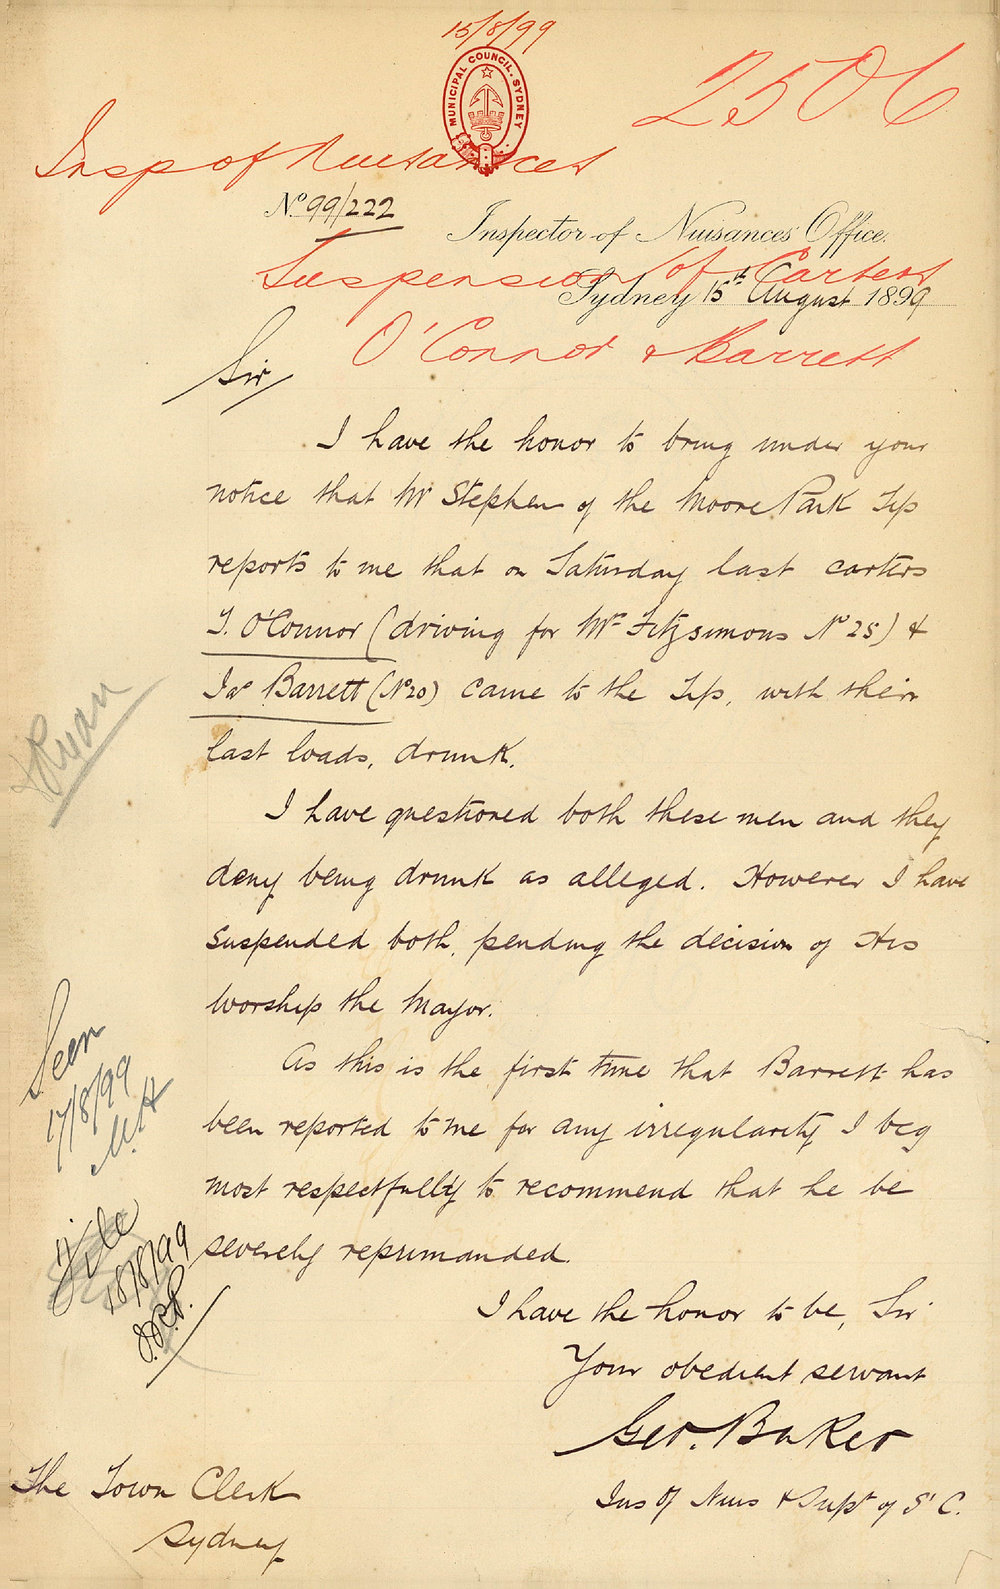 15/8/99
MUNICIPAL COUNCIL. SYDNEY
2506
Insp of Nuisances
No 99/222
Inspector of Nuisances' Office.
Suspension of Carters
Sydney 15th August 1899
O'Connor & Barrett
Sir
I have the honor to bring under your
notice that Mr Stephen of the Moore Park Tip
reports to me that on Saturday last carters
T. O'Connor (driving for Mrs Fitzsimons No 25) &
Jas Barrett (No 20) came to the Tip, with their
last loads, drunk.
I have questioned both these men and they
deny being drunk as alleged. However I have
suspended both, pending the decision of His
Worship the Mayor.
As this is the first time that Barrett has
been reported to me for any irregularity I beg
most respectfully to recommend that he be
severely reprimanded.
I have the honor to be, Sir
Your obedient servant
Geo. Baker
Ins of Nuis & Supt of S C.
The Town Clerk
Sydney
Seen
17/8/99
File
18/8/99